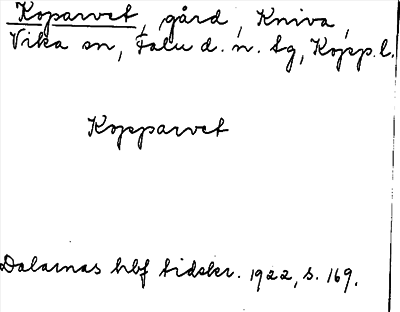 Koparvet, gård, Kniva,
Vika sn, Falu d. n. tg, Kopp. l.
Kopparvet
Dalarnas hbf tidskr. 1922, s. 169.